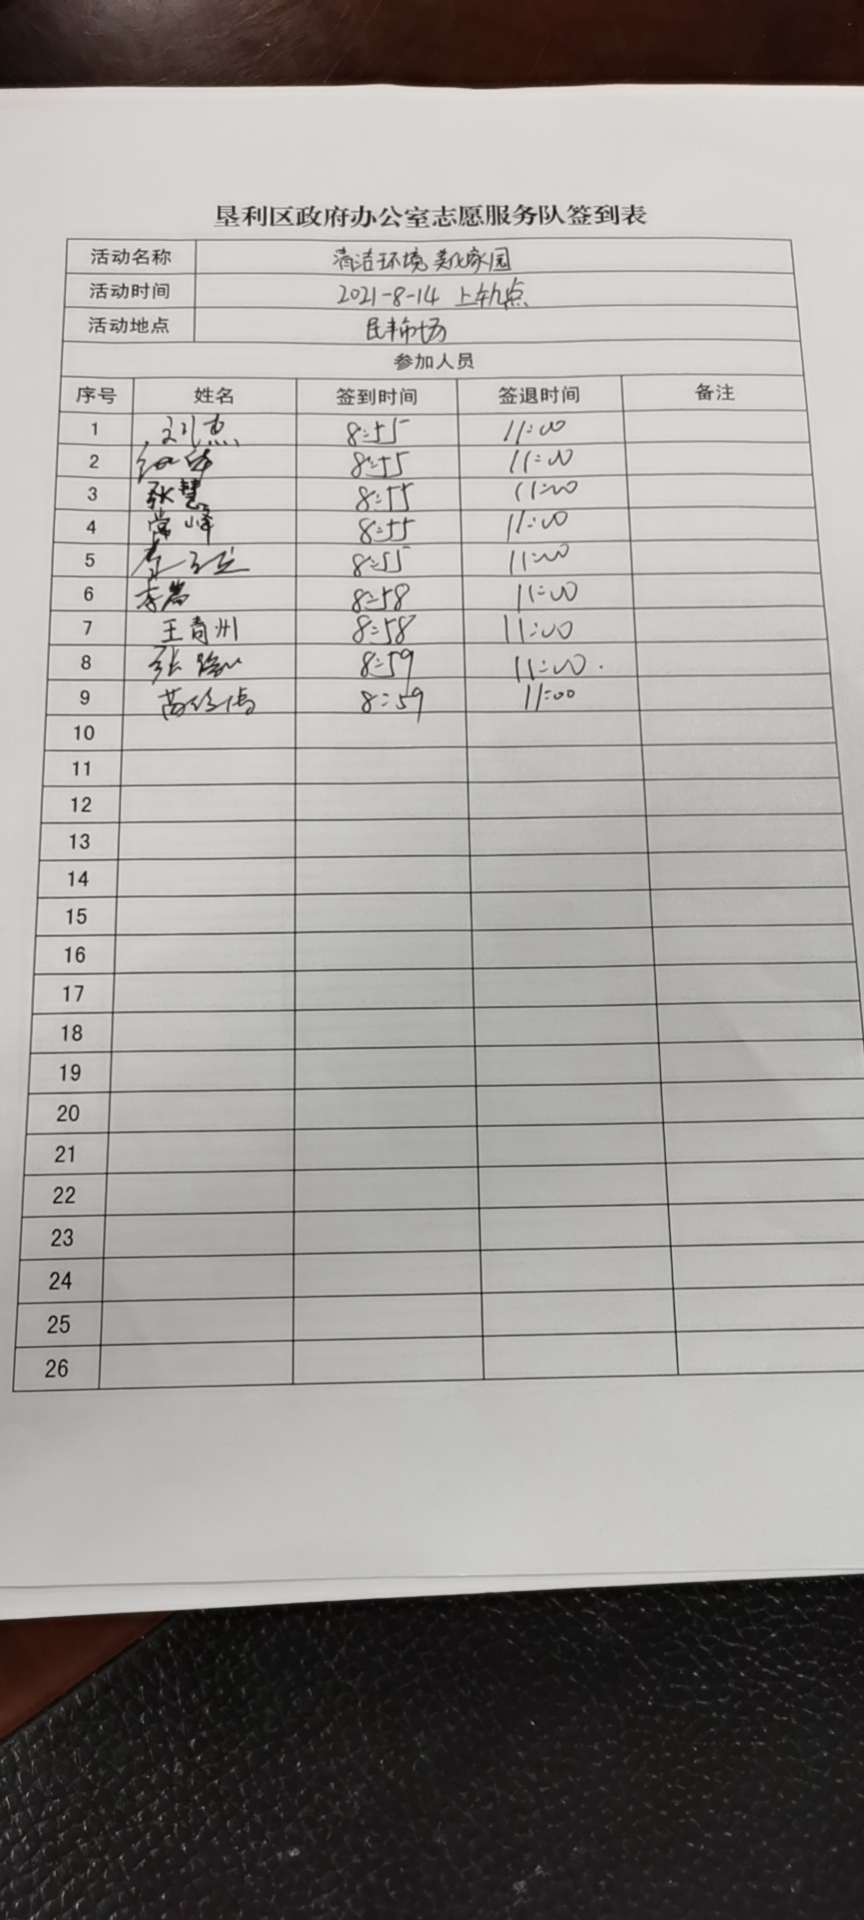 垦利区政府办公室志愿服务队签到表
活动名称 清洁环境 美化家园
活动时间 2021-8-14 上午九点
活动地点 民丰市场
参加人员
序号 姓名 签到时间 签退时间 备注
1 刘杰 8:55 11:00
2 8:55 11:00
3 张慧 8:55 11:00
4 常峰 8:55 11:00
5 8:55 11:00
6 8:58 11:00
7 王青州 8:58 11:00
8 张 8:59 11:00
9 苗 8:59 11:00
10
11
12
13
14
15
16
17
18
19
20
21
22
23
24
25
26